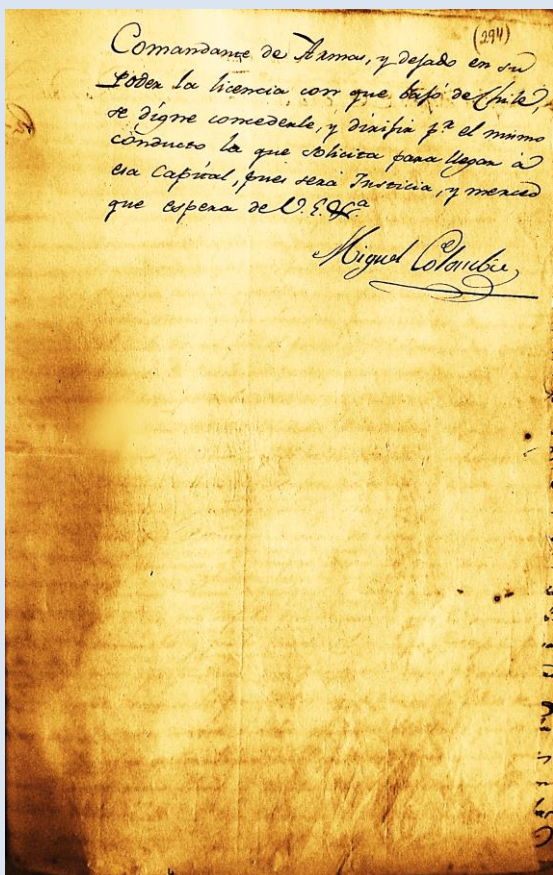 (294)
Comandante de Armas, y dejado en su
Poder la licencia con que bajó de Chile,
se digne concederle, y dirijir pª el mismo
conducto la que solicita para llegar á
esa Capital, pues será Justicia, y merced
que espera de V. E. &ª
Miguel Colombie